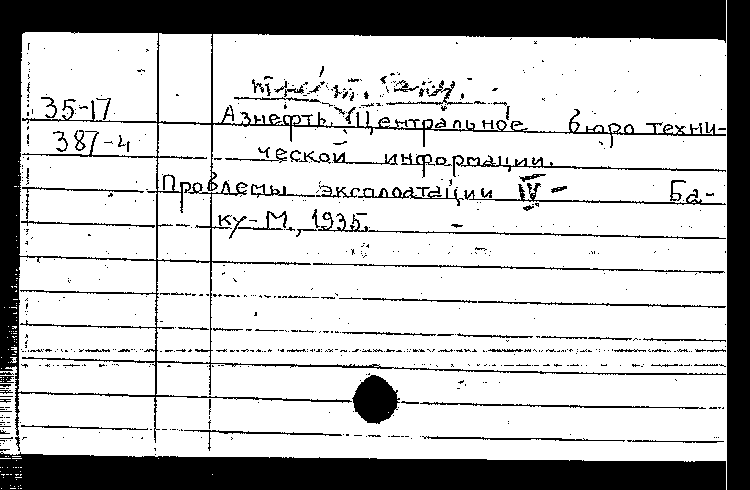 трест. Баку.
35-17
Азнефть. Центральное бюро техни-
387-4
ческой информации.
Проблемы эксплоатации IV - Ба-
ку-М., 1935.